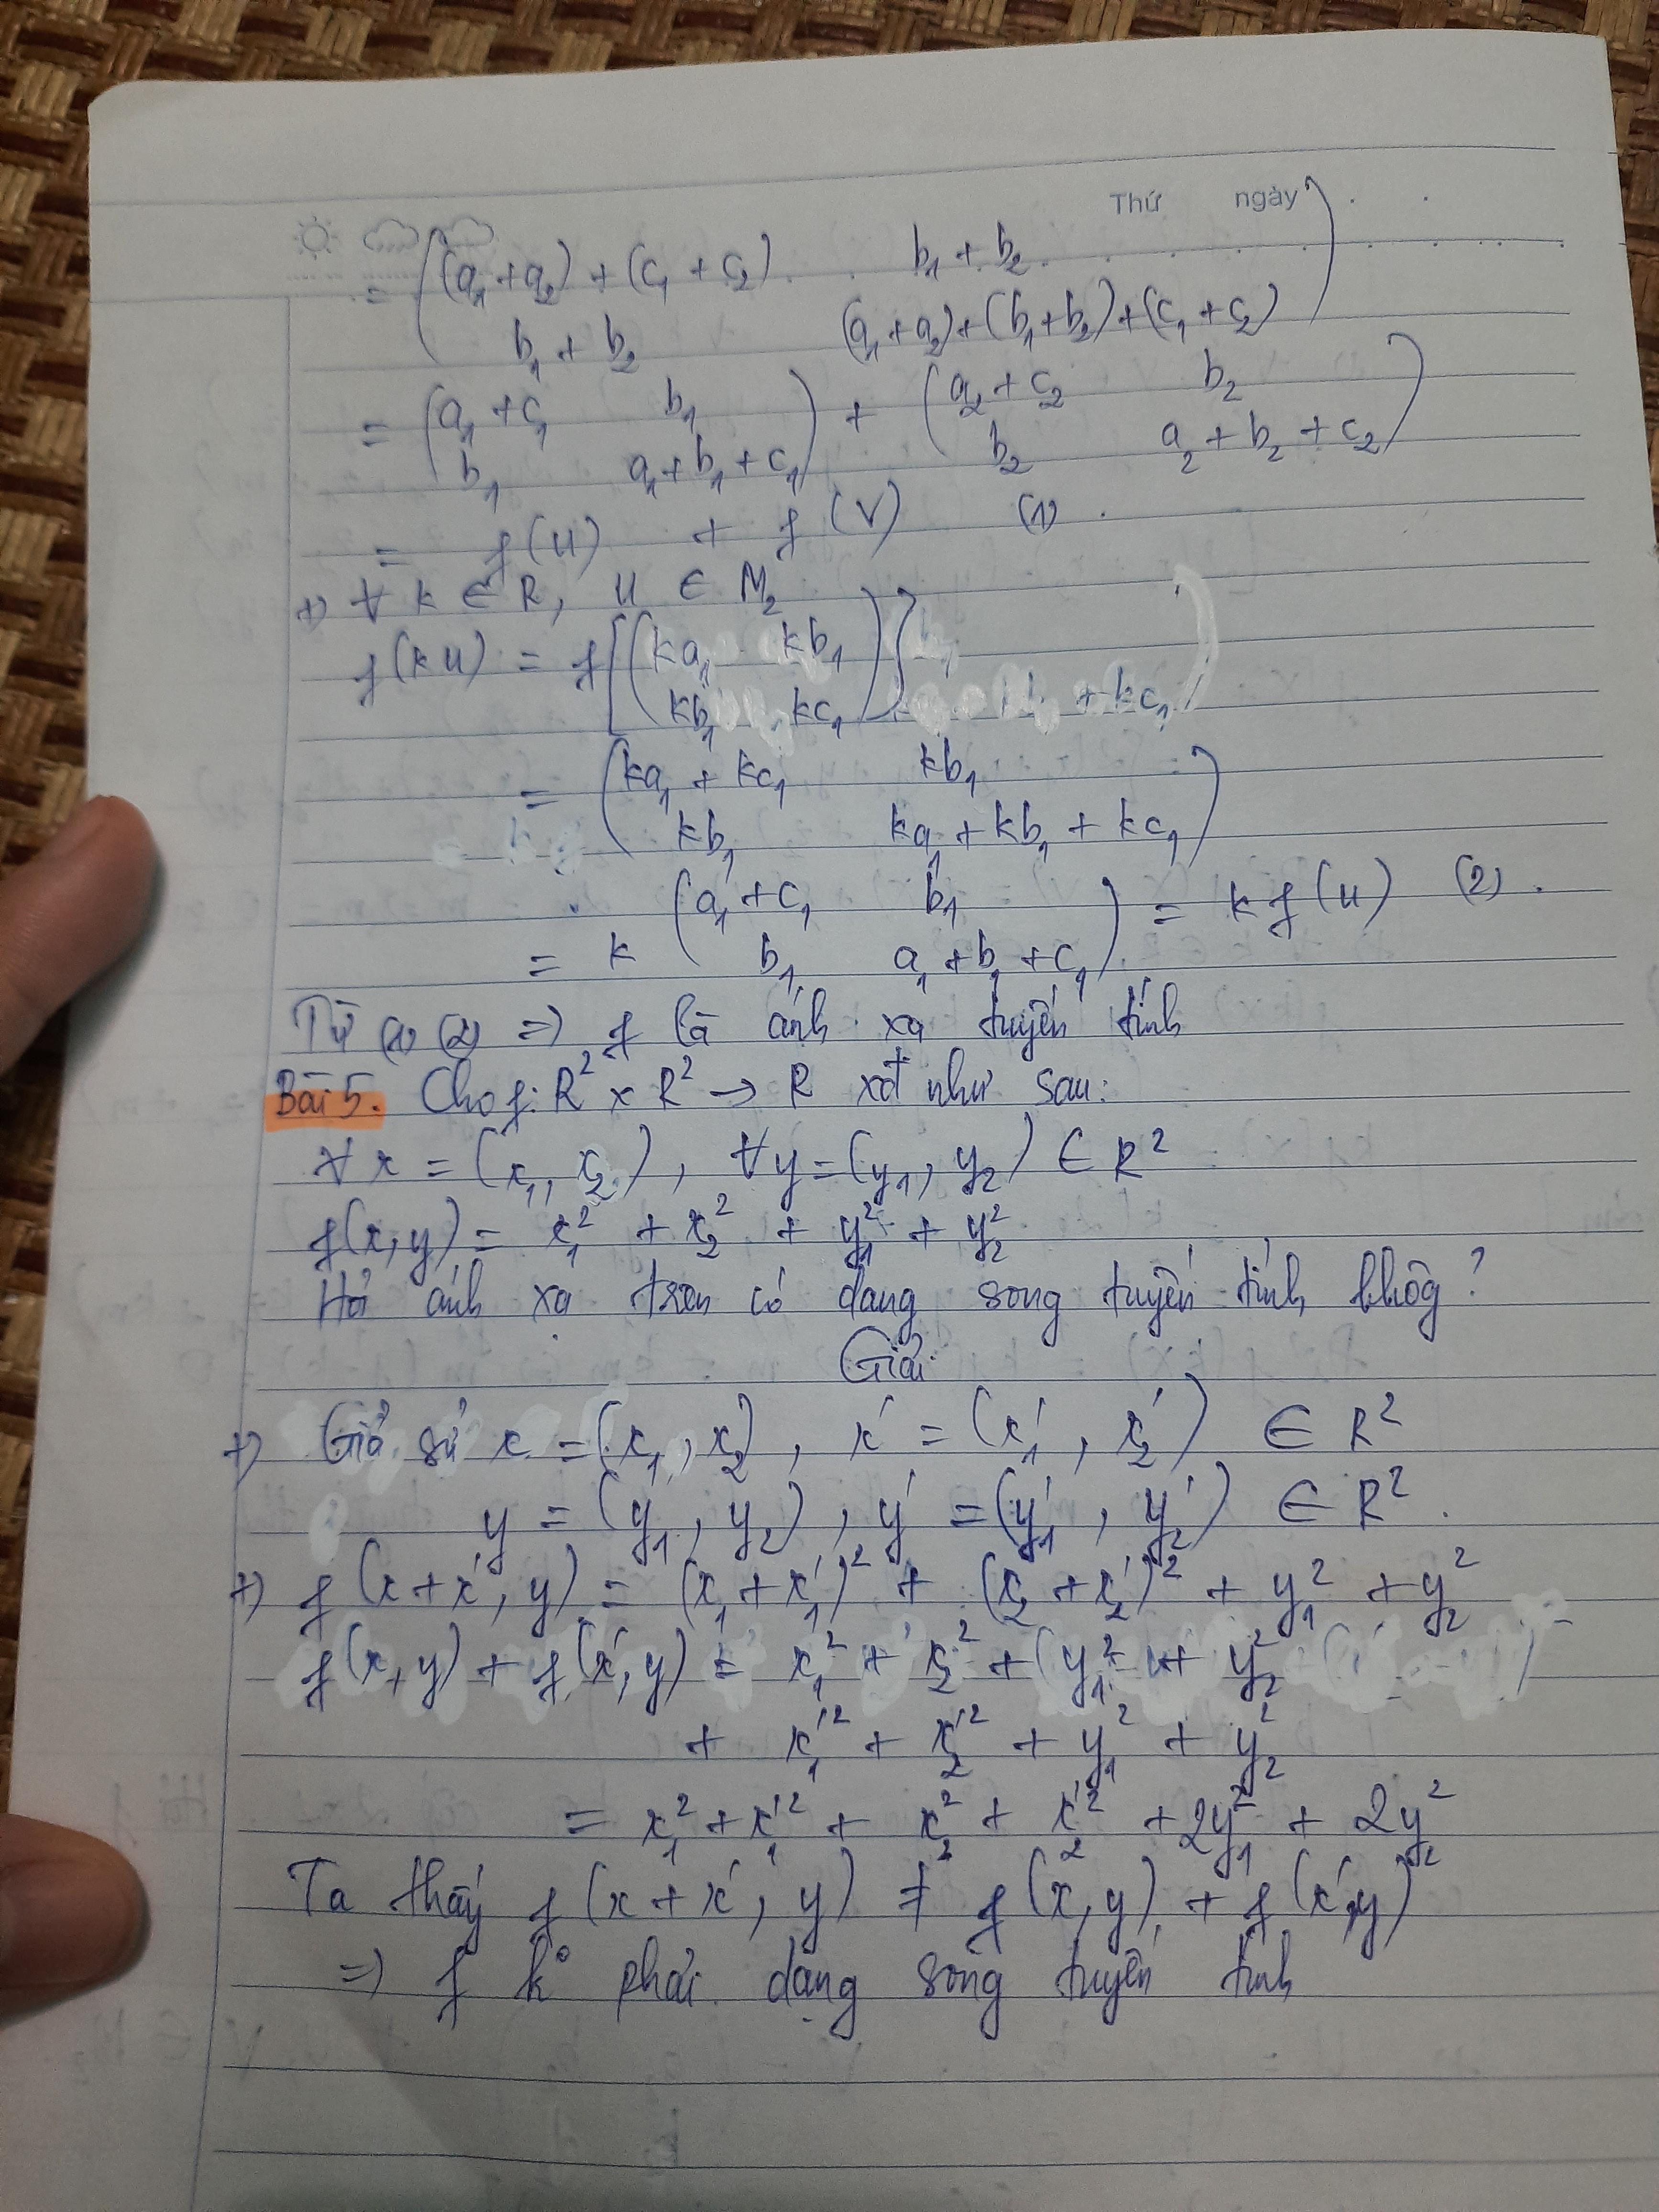 Thứ ngày
= ((a₁ + a₂) + (c₁ + c₂) b₁ + b₂
b₁ + b₂ (a₁ + a₂) + (b₁ + b₂) + (c₁ + c₂))
= (a₁ + c₁ b₁ ) + (a₂ + c₂ b₂
b₁ a₁ + b₁ + c₁ b₂ a₂ + b₂ + c₂)
= f(u) + f(v) (1)
+) ∀ k ∈ R, u ∈ M₂
f(ku) = f[(ka₁ kb₁
kb₁ kc₁)] + kc₁
= (ka₁ + kc₁ kb₁
kb₁ ka₁ + kb₁ + kc₁)
= k (a₁ + c₁ b₁
b₁ a₁ + b₁ + c₁) = k f(u) (2).
Từ (1) (2) => f là ánh xạ tuyến tính
Bài 5. Cho f: R² × R² → R xđ như sau:
∀ x = (x₁, x₂), ∀ y = (y₁, y₂) ∈ R²
f(x, y) = x₁² + x₂² + y₁² + y₂²
Hỏi ánh xạ trên có dạng song tuyến tính không?
Giải
+) Giả sử x = (x₁, x₂), x' = (x₁', x₂') ∈ R²
y = (y₁, y₂), y' = (y₁', y₂') ∈ R².
+) f(x + x', y) = (x₁ + x₁')² + (x₂ + x₂')² + y₁² + y₂²
f(x, y) + f(x', y) = x₁² + x₂² + (y₁² + y₂²
+ x₁'² + x₂'² + y₁² + y₂²
= x₁² + x₁'² + x₂² + x₂'² + 2y₁² + 2y₂²
Ta thấy f(x + x', y) ≠ f(x, y) + f(x', y)
=> f k° phải dạng song tuyến tính